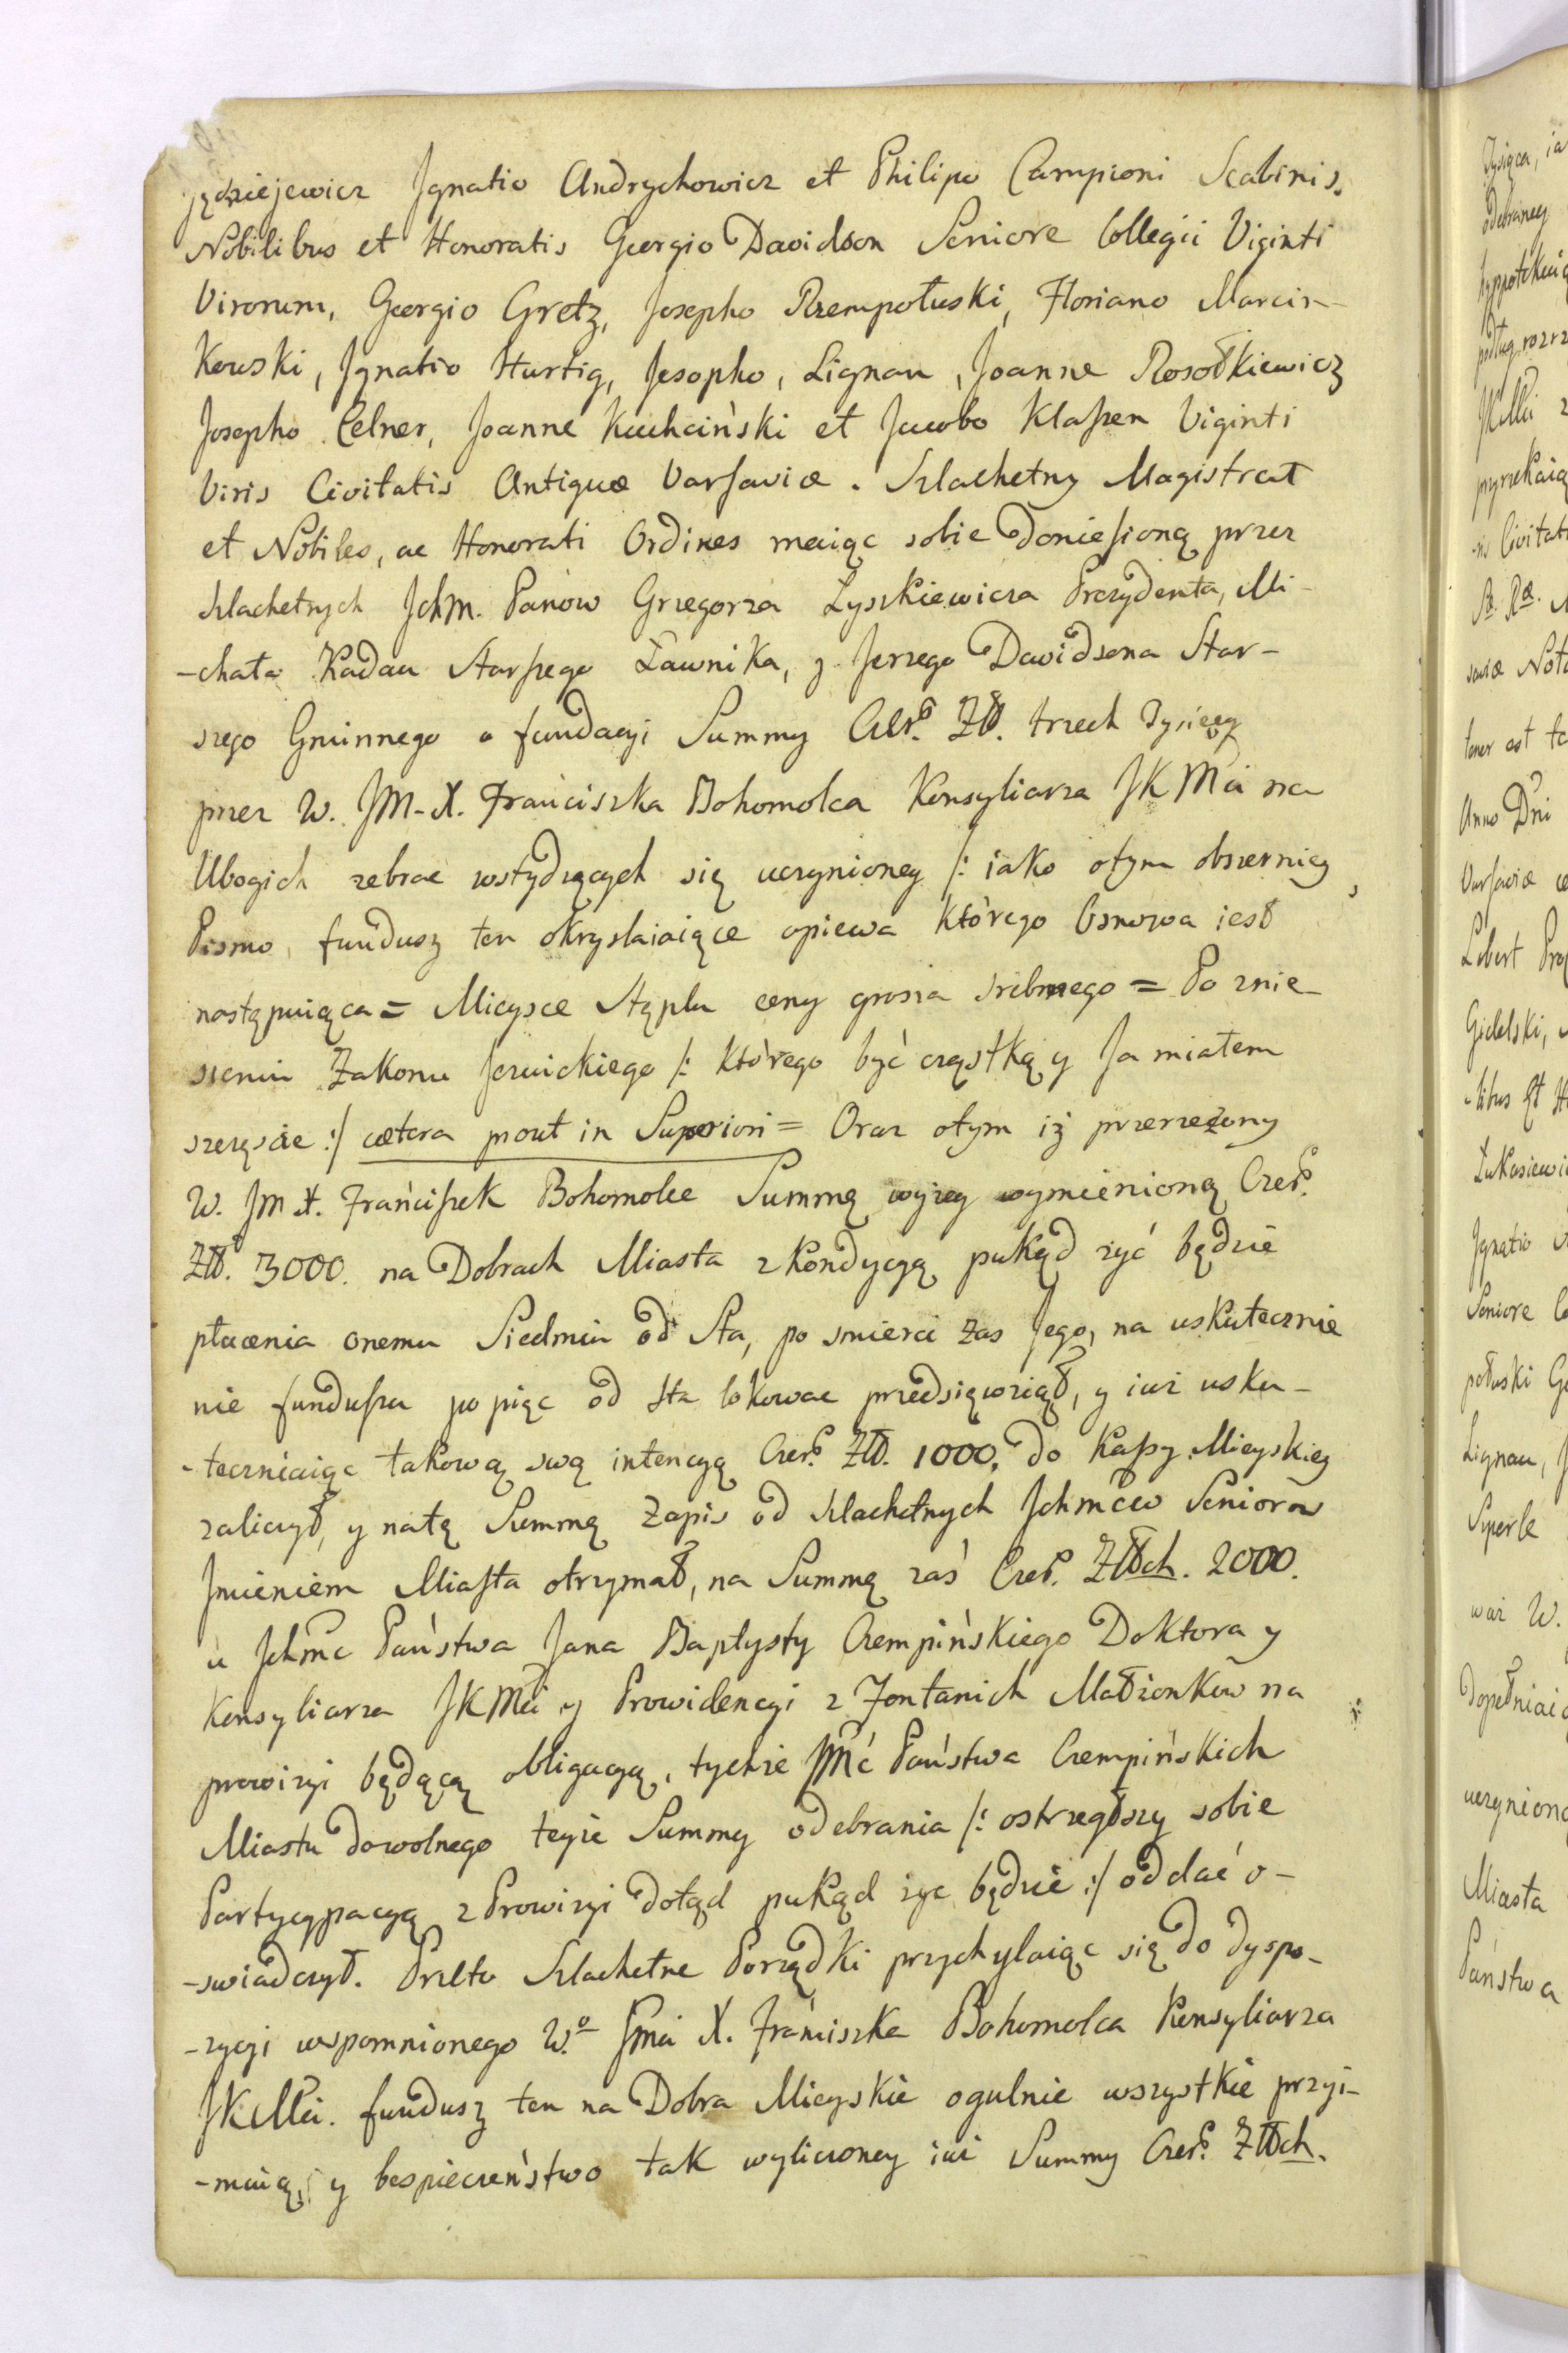 jędziejewicz Jgnatio Andrychowicz et Philipo Campioni Scabinis.
Nobilibus et Honoratis Georgio Davidson Seniore Collegii Viginti
Virorum, Georgio Gretz, Josepho Rzempołuski, Floriano Marcin-
kowski, Jgnatio Hurtig, Josepho, Lignau, Joanne Rosołkiewicz
Josepho Celner, Joanne Kuchciński et Jacobo Klaſzen Viginti
Viris Civitatis Antiquæ Varſaviæ. Szlachetny Magistrat
et Nobiles, ac Honorati Ordines maiąc sobie donieſioną przez
Szlachetnych Jchm. Panów Grzegorza Łyszkiewicza Prezydenta, Mi-
-chała Kadau Starſzego Ławnika, y Jerzego Davidsona Star-
szego Gminnego o fundacyi Summy Czer. Złł. trzech Tysięcy
przez W. JM-X. Franciszka Bohomolca Konsyliarza JKMci na
Ubogich zebrac wstydzących się uczynioney /: iako otym obszerniey
Pismo, fundusz ten okryslaiaiące opiewa którego Osnowa iest
następuiąca = Mieysce Stęplu ceny grosza srebrnego = Po znie-
sieniu Zakonu Jezuickiego /: którego być cząstką y Ja miałem
szczęscie :/ cætera prout in Superiori = Oraz otym iż przerzeżony
W. JM X. Franciſzek Bohomolec Summę wyżey wymienioną Czer.
Złł. 3000. na Dobrach Miasta z Kondycyą pukąd żyć będzie
płacenia onemu Siedmiu od Sta, po smierci zas Jego, na uskutecznie
nie funduſzu po pięc od sta lokowac przedsięwziął, y iuż usku-
-teczniaiąc takową swą intencyą Czer. Złł. 1000. do Kaſsy Mieyskiey
zaliczył, y natę Summę Zapis od Szlachetnych Jchmców Seniorow
Jmieniem Miaſta otrzymał, na Summę zaś Czer. Złłch. 2000.
u Jchmc Państwa Jana Baptysty Czempińskiego Doktora y
Konsyliarza JKMci y Prowidencyi z Fontanich Małżonków na
prowizyi będącą obligacyą, tychże JMć Państwa Czempińskich
Miastu dowolnego teyże Summy odebrania /: ostrzegłszy sobie
Partycypacyą z Prowizyi dotąd pukąd życ będzie :/ oddać o-
-swiadczył. Przeto Szlachetne Porządki przychylaiąc się do dyspo-
-zycyi wspomnionego W.º Jmci X. Franciszka Bohomolca Konsyliarza
JKMci. fundusz ten na Dobra Mieyskie ogulnie wszystkie przyi-
-muią, y bespieczeństwo tak wyliczoney iuż Summy Czer. Złłch.